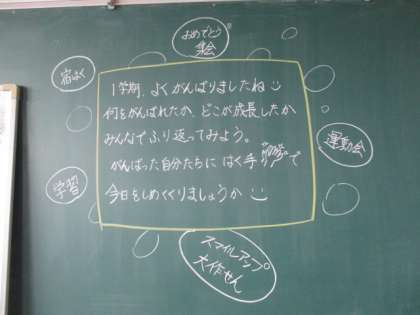 おめでとう
集会
宿はく
1学期、よくがんばりましたね
何をがんばれたか、どこが成長したか
みんなでふり返ってみよう。
がんばった自分たちに はく手で
今日をしめくくりましょうか
運動会
学習
スマイルアップ
大作せん